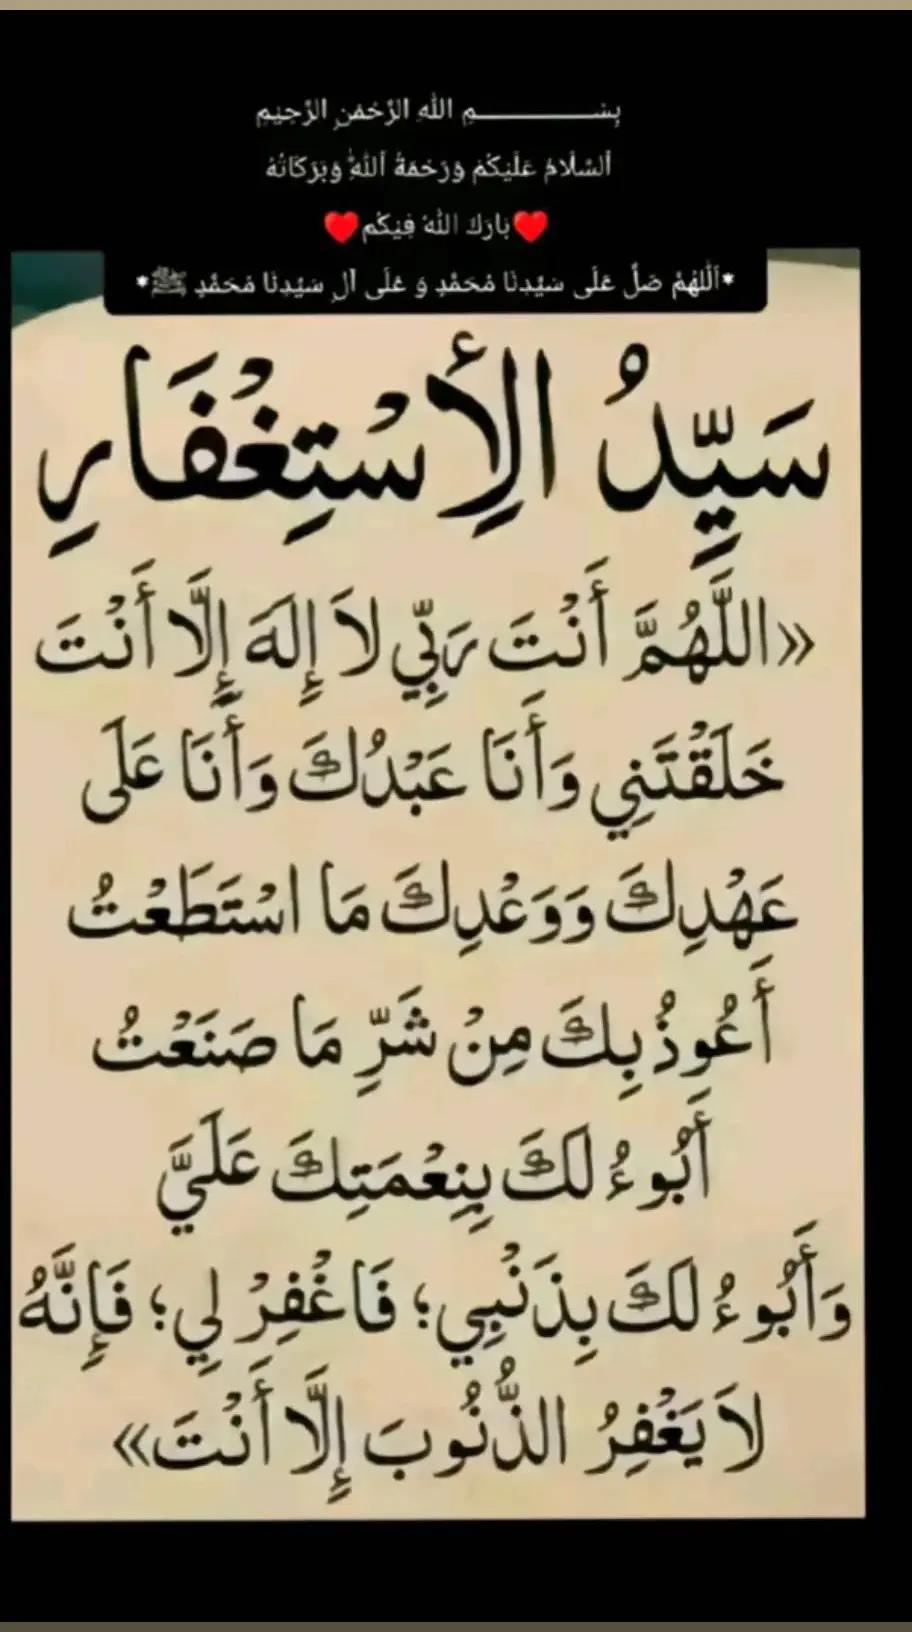 بِسْــــــــــــــمِ اللهِ الرَّحْمَنِ الرَّحِيمِ
اَلسَّلَامُ عَلَيْكُمْ وَرَحْمَةُ اَللهِ وَبَرَكَاتُهُ
❤️بَارَكَ اللهُ فِيْكُم❤️
*اَللَّهُمَّ صَلِّ عَلَى سَيِّدِنَا مُحَمَّدٍ وَ عَلَى آلِ سَيِّدِنَا مُحَمَّدٍ ﷺ*
سَيِّدُ الِأسْتِغْفَارِ
«اللَّهُمَّ أَنْتَ رَبِّي لاَ إِلهَ إِلَّا أَنْتَ
خَلَقْتَنِي وَأَنَا عَبْدُكَ وَأَنَا عَلَى
عَهْدِكَ وَوَعْدِكَ مَا اسْتَطَعْتُ
أَعُوذُ بِكَ مِنْ شَرِّ مَا صَنَعْتُ
أَبُوءُ لَكَ بِنِعْمَتِكَ عَلَيَّ
وَأَبُوءُ لَكَ بِذَنْبِي؛ فَاغْفِرْ لِي؛ فَإِنَّهُ
لاَ يَغْفِرُ الذُّنُوبَ إِلَّا أَنْتَ»